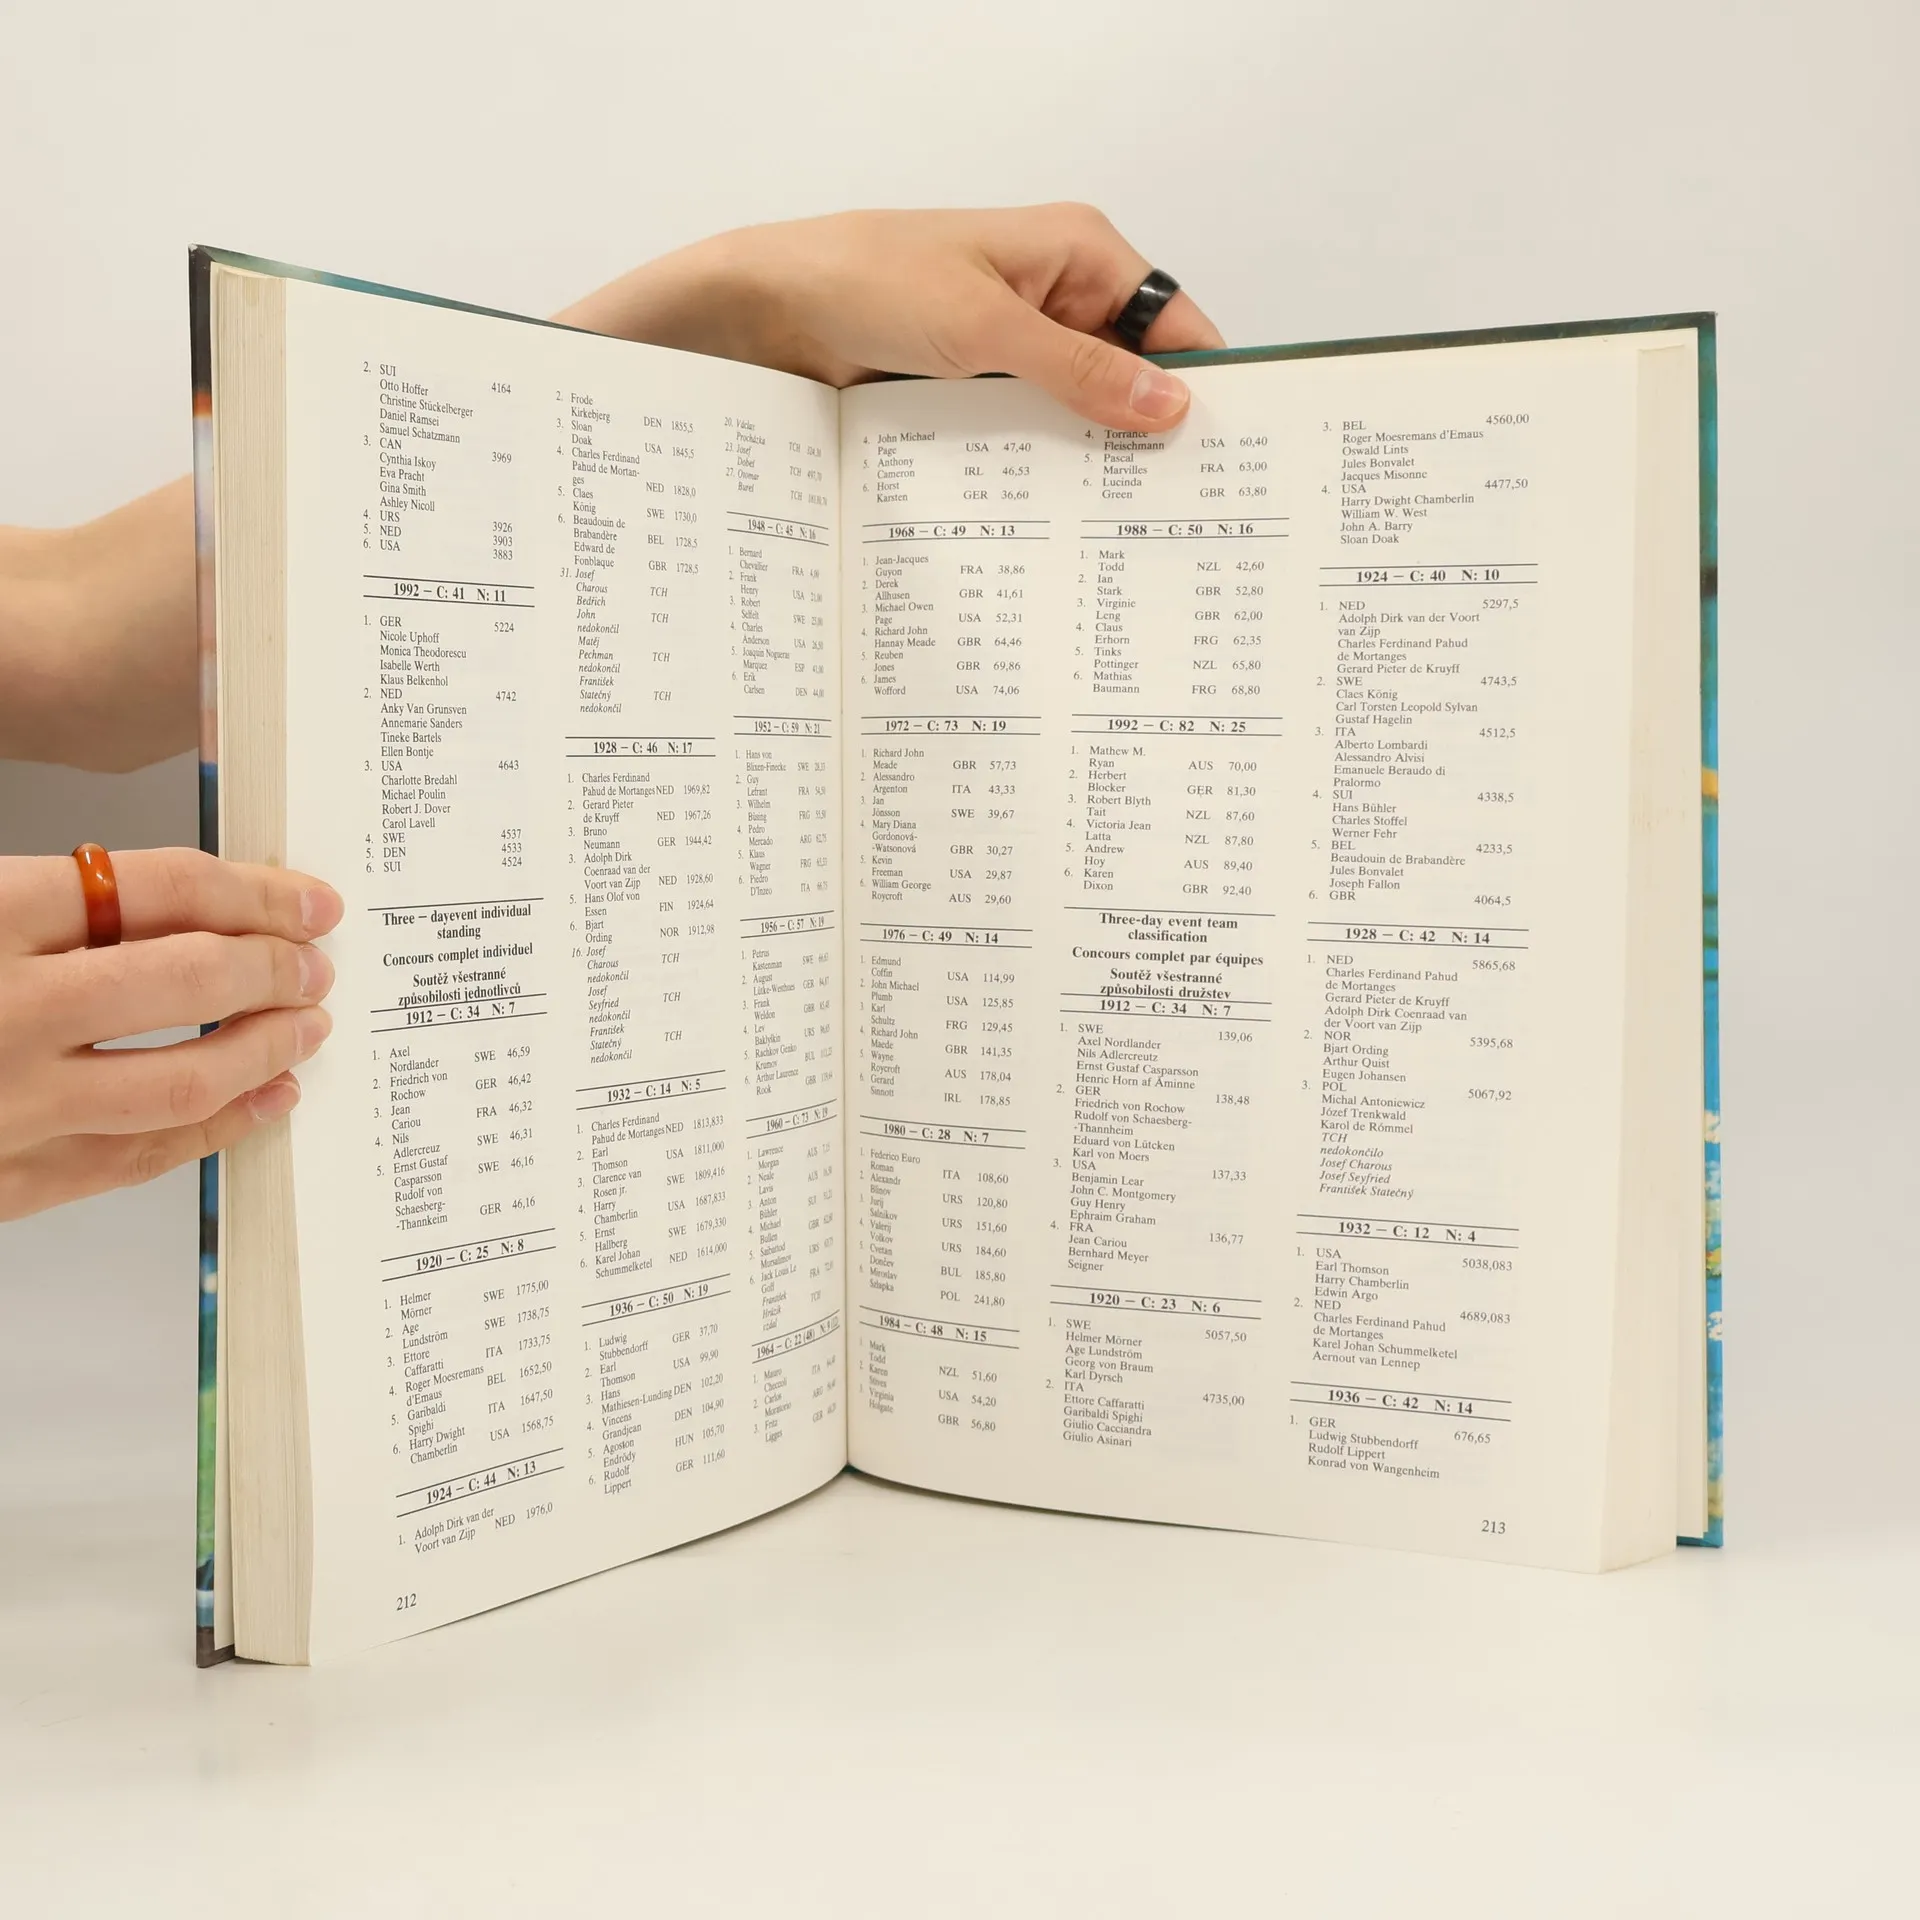 2. SUI
Otto Hoffer 4164
Christine Stückelberger
Daniel Ramsei
Samuel Schatzmann
3. CAN
Cynthia Iskoy 3969
Eva Pracht
Gina Smith
Ashley Nicoll
4. URS 3926
5. NED 3903
6. USA 3883
1992 – C: 41 N: 11
1. GER 5224
Nicole Uphoff
Monica Theodorescu
Isabelle Werth
Klaus Belkenhol
2. NED 4742
Anky Van Grunsven
Annemarie Sanders
Tineke Bartels
Ellen Bontje
3. USA 4643
Charlotte Bredahl
Michael Poulin
Robert J. Dover
Carol Lavell
4. SWE 4537
5. DEN 4533
6. SUI 4524
Three – dayevent individual
standing
Concours complet individuel
Soutěž všestranné
způsobilosti jednotlivců
1912 – C: 34 N: 7
1. Axel
Nordlander SWE 46,59
2. Friedrich von
Rochow GER 46,42
3. Jean
Cariou FRA 46,32
4. Nils
Adlercreuz SWE 46,31
5. Ernst Gustaf
Casparsson SWE 46,16
Rudolf von
Schaesberg-
-Thannkeim GER 46,16
1920 – C: 25 N: 8
1. Helmer
Mörner SWE 1775,00
2. Age
Lundström SWE 1738,75
3. Ettore
Caffaratti ITA 1733,75
4. Roger Moesremans
d'Emaus BEL 1652,50
5. Garibaldi
Spighi ITA 1647,50
6. Harry Dwight
Chamberlin USA 1568,75
1924 – C: 44 N: 13
1. Adolph Dirk van der
Voort van Zijp NED 1976,0
212
2. Frode
Kirkebjerg DEN 1855,5
3. Sloan
Doak USA 1845,5
4. Charles Ferdinand
Pahud de Mortan-
ges NED 1828,0
5. Claes
König SWE 1730,0
6. Beaudouin de
Brabandère BEL 1728,5
Edward de
Fonblaque GBR 1728,5
31. Josef
Charous TCH
Bedřich
John TCH
nedokončil
Matěj
Pechman TCH
nedokončil
František
Statečný TCH
nedokončil
1928 – C: 46 N: 17
1. Charles Ferdinand
Pahud de Mortanges NED 1969,82
2. Gerard Pieter
de Kruyff NED 1967,26
3. Bruno
Neumann GER 1944,42
3. Adolph Dirk
Coenraad van der
Voort van Zijp NED 1928,60
5. Hans Olof von
Essen FIN 1924,64
6. Bjart
Ording NOR 1912,98
16. Josef
Charous TCH
nedokončil
Josef
Seyfried TCH
nedokončil
František
Statečný TCH
nedokončil
1932 – C: 14 N: 5
1. Charles Ferdinand
Pahud de Mortanges NED 1813,833
2. Earl
Thomson USA 1811,000
3. Clarence van
Rosen jr. SWE 1809,416
4. Harry
Chamberlin USA 1687,833
5. Ernst
Hallberg SWE 1679,330
6. Karel Johan
Schummelketel NED 1614,000
1936 – C: 50 N: 19
1. Ludwig
Stubbendorff GER 37,70
2. Earl
Thomson USA 99,90
3. Hans
Mathiesen-Lunding DEN 102,20
4. Vincens
Grandjean DEN 104,90
5. Agoston
Endrödy HUN 105,70
6. Rudolf
Lippert GER 111,60
20. Václav
Procházka TCH
23. Josef
Dobeš TCH
27. Otomar
Bureš TCH
1948 – C: 45 N: 16
1. Bernard
Chevallier FRA 4,00
2. Frank
Henry USA 21,00
3. Robert
Selfelt SWE 25,00
4. Charles
Anderson USA 26,50
5. Joaquin Nogueras
Marquez ESP 41,00
6. Erik
Carlsen DEN 44,00
1952 – C: 59 N: 21
1. Hans von
Blixen-Finecke SWE 28,33
2. Guy
Lefrant FRA 54,50
3. Wilhelm
Büsing FRG 55,50
4. Pedro
Mercado ARG 62,75
5. Klaus
Wagner FRG
6. Piedro
D'Inzeo ITA
1956 – C: 57 N: 19
1. Petrus
Kastenman SWE
2. August
Lütke-Westhues GER
3. Frank
Weldon GBR
4. Lev
Baklyškin URS
5. Rachkov Genko
Krumov BUL
6. Arthur Laurence
Rook GBR
1960 – C: 73 N: 19
1. Lawrence
Morgan AUS
2. Neale
Lavis AUS
3. Anton
Bühler SUI
4. Michael
Bullen GBR
5. Saibattal
Mursalimov URS
6. Jack Louis Le
Goff FRA
František
Hrúzik TCH
vzdal
1964 – C: 22 (48)
1. Mauro
Checcoli ITA
2. Carlos
Moratorio ARG
3. Fritz
Ligges GER
4. John Michael
Page USA 47,40
5. Anthony
Cameron IRL 46,53
6. Horst
Karsten GER 36,60
1968 – C: 49 N: 13
1. Jean-Jacques
Guyon FRA 38,86
2. Derek
Allhusen GBR 41,61
3. Michael Owen
Page USA 52,31
4. Richard John
Hannay Meade GBR 64,46
5. Reuben
Jones GBR 69,86
6. James
Wofford USA 74,06
1972 – C: 73 N: 19
1. Richard John
Meade GBR 57,73
2. Alessandro
Argenton ITA 43,33
3. Jan
Jönsson SWE 39,67
4. Mary Diana
Gordonová-
-Watsonová GBR 30,27
5. Kevin
Freeman USA 29,87
6. William George
Roycroft AUS 29,60
1976 – C: 49 N: 14
1. Edmund
Coffin USA 114,99
2. John Michael
Plumb USA 125,85
3. Karl
Schultz FRG 129,45
4. Richard John
Maede GBR 141,35
5. Wayne
Roycroft AUS 178,04
6. Gerard
Sinnott IRL 178,85
1980 – C: 28 N: 7
1. Federico Euro
Roman ITA 108,60
2. Alexandr
Blinov URS 120,80
3. Jurij
Salnikov URS 151,60
4. Valerij
Volkov URS 184,60
5. Cvetan
Dončev BUL 185,80
6. Miroslav
Szlapka POL 241,80
1984 – C: 48 N: 15
1. Mark
Todd NZL 51,60
2. Karen
Stives USA 54,20
3. Virginia
Holgate GBR 56,80
4. Torrance
Fleischmann USA 60,40
5. Pascal
Marvilles FRA 63,00
6. Lucinda
Green GBR 63,80
1988 – C: 50 N: 16
1. Mark
Todd NZL 42,60
2. Ian
Stark GBR 52,80
3. Virginie
Leng GBR 62,00
4. Claus
Erhorn FRG 62,35
5. Tinks
Pottinger NZL 65,80
6. Mathias
Baumann FRG 68,80
1992 – C: 82 N: 25
1. Mathew M.
Ryan AUS 70,00
2. Herbert
Blocker GER 81,30
3. Robert Blyth
Tait NZL 87,60
4. Victoria Jean
Latta NZL 87,80
5. Andrew
Hoy AUS 89,40
6. Karen
Dixon GBR 92,40
Three-day event team
classification
Concours complet par équipes
Soutěž všestranné
způsobilosti družstev
1912 – C: 34 N: 7
1. SWE 139,06
Axel Nordlander
Nils Adlercreutz
Ernst Gustaf Casparsson
Henric Horn af Åminne
2. GER 138,48
Friedrich von Rochow
Rudolf von Schaesberg-
-Thannheim
Eduard von Lütcken
Karl von Moers
3. USA 137,33
Benjamin Lear
John C. Montgomery
Guy Henry
Ephraim Graham
4. FRA 136,77
Jean Cariou
Bernhard Meyer
Seigner
1920 – C: 23 N: 6
1. SWE 5057,50
Helmer Mörner
Age Lundström
Georg von Braum
Karl Dyrsch
2. ITA 4735,00
Ettore Caffaratti
Garibaldi Spighi
Giulio Cacciandra
Giulio Asinari
3. BEL 4560,00
Roger Moesremans d'Emaus
Oswald Lints
Jules Bonvalet
Jacques Misonne
4. USA 4477,50
Harry Dwight Chamberlin
William W. West
John A. Barry
Sloan Doak
1924 – C: 40 N: 10
1. NED 5297,5
Adolph Dirk van der Voort
van Zijp
Charles Ferdinand Pahud
de Mortanges
Gerard Pieter de Kruyff
2. SWE 4743,5
Claes König
Carl Torsten Leopold Sylvan
Gustaf Hagelin
3. ITA 4512,5
Alberto Lombardi
Alessandro Alvisi
Emanuele Beraudo di
Pralormo
4. SUI 4338,5
Hans Bühler
Charles Stoffel
Werner Fehr
5. BEL 4233,5
Beaudouin de Brabandère
Jules Bonvalet
Joseph Fallon
6. GBR 4064,5
1928 – C: 42 N: 14
1. NED 5865,68
Charles Ferdinand Pahud
de Mortanges
Gerard Pieter de Kruyff
Adolph Dirk Coenraad van
der Voort van Zijp
2. NOR 5395,68
Bjart Ording
Arthur Quist
Eugen Johansen
3. POL 5067,92
Michal Antoniewicz
Józef Trenkwald
Karol de Rómmel
TCH
nedokončilo
Josef Charous
Josef Seyfried
František Statečný
1932 – C: 12 N: 4
1. USA 5038,083
Earl Thomson
Harry Chamberlin
Edwin Argo
2. NED 4689,083
Charles Ferdinand Pahud
de Mortanges
Karel Johan Schummelketel
Aernout van Lennep
1936 – C: 42 N: 14
1. GER 676,65
Ludwig Stubbendorff
Rudolf Lippert
Konrad von Wangenheim
213